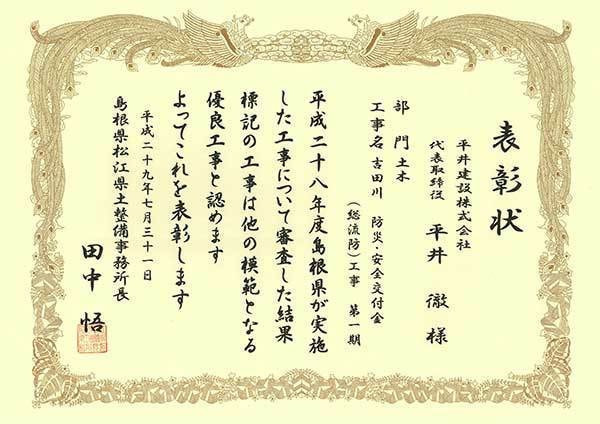 表彰状
平井建設株式会社
代表取締役 平井 徹 様
部 門 土木
工事名 吉田川 防災・安全交付金
(総流防)工事 第一期
平成二十八年度島根県が実施
した工事について審査した結果
標記の工事は他の模範となる
優良工事と認めます
よってこれを表彰します
平成二十九年七月三十一日
島根県松江県土整備事務所長
田中 悟